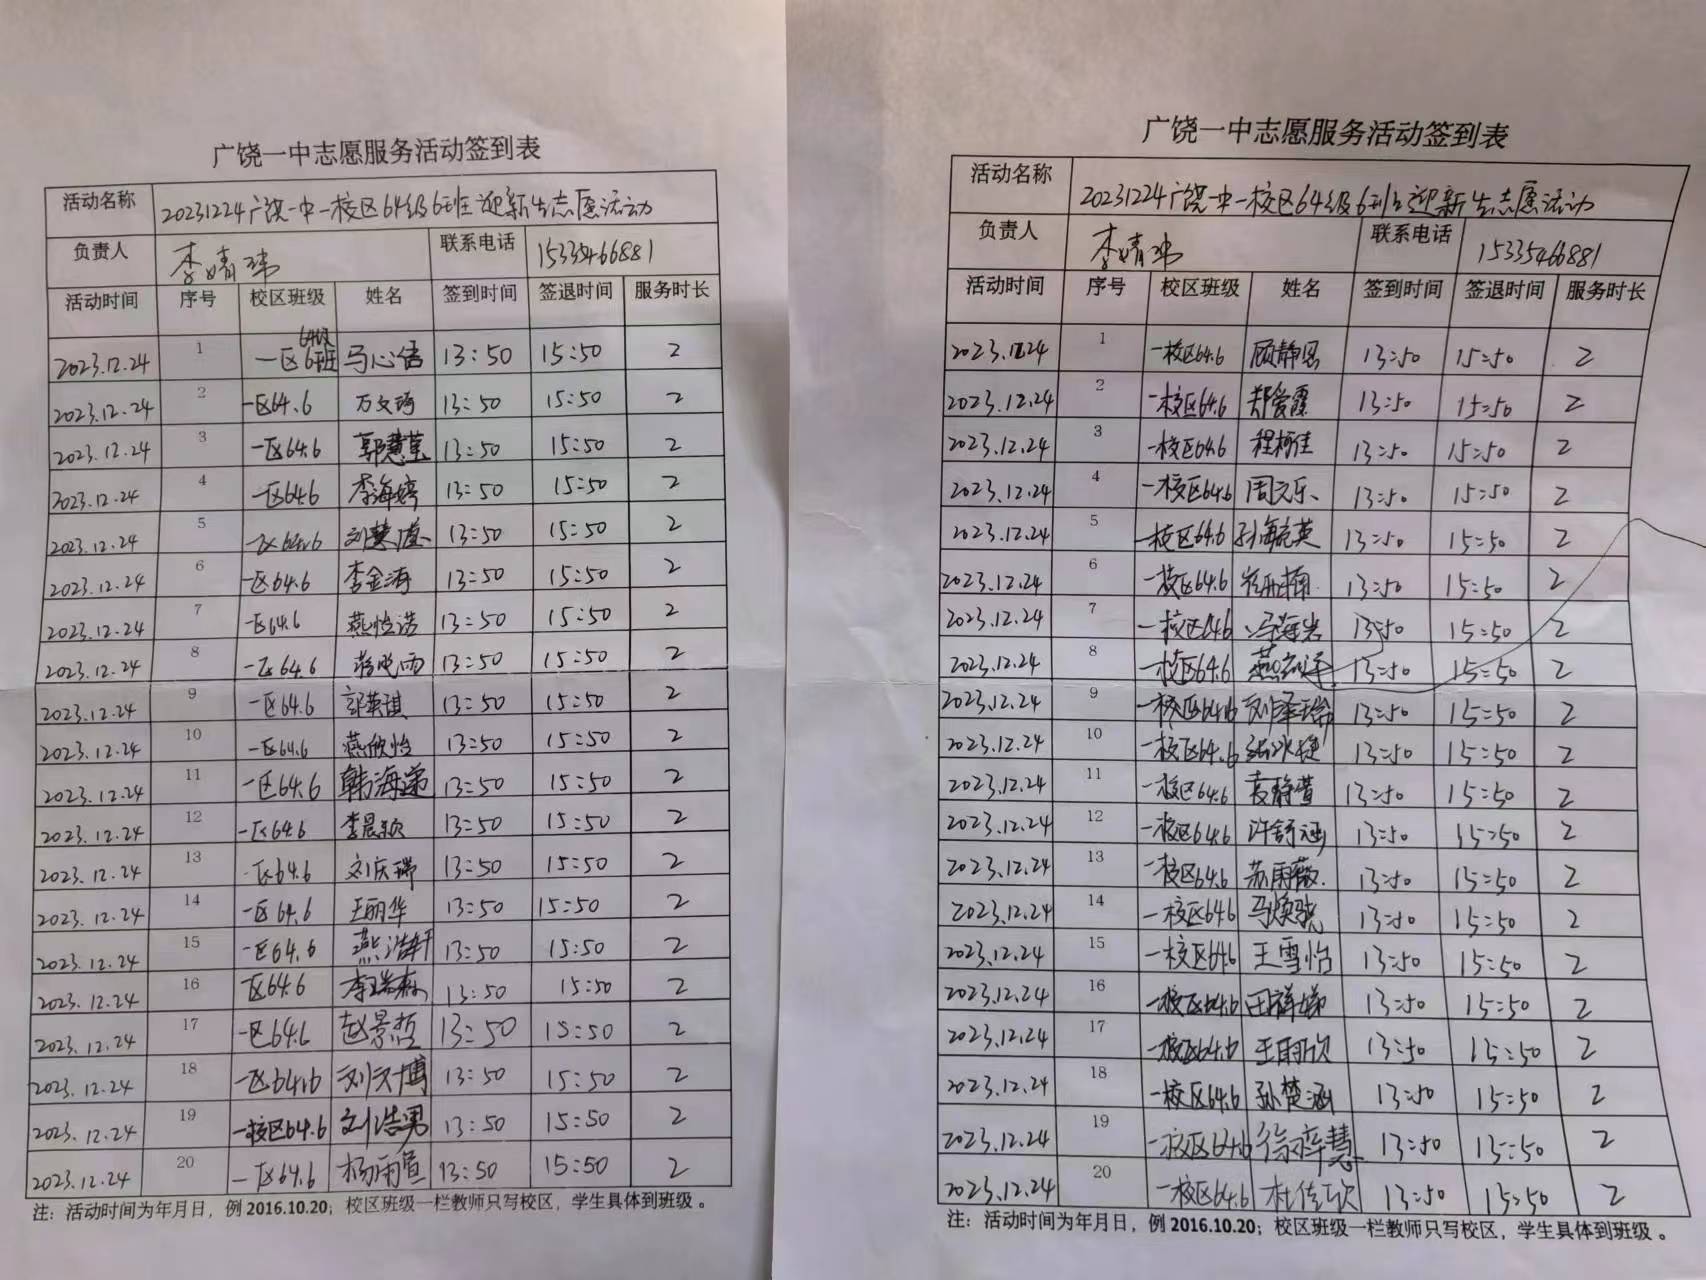 广饶一中志愿服务活动签到表
活动名称 20231224广饶一中一校区64级6班迎新生志愿活动
负责人 李婧玮 联系电话 15335466881
活动时间 序号 校区班级 姓名 签到时间 签退时间 服务时长
2023.12.24 1 一区64级6班 马心语 13:50 15:50 2
2023.12.24 2 一区64.6 万文琦 13:50 15:50 2
2023.12.24 3 一区64.6 郭慧莹 13:50 15:50 2
2023.12.24 4 一区64.6 李海婷 13:50 15:50 2
2023.12.24 5 一区64.6 刘慧 13:50 15:50 2
2023.12.24 6 一区64.6 李金涛 13:50 15:50 2
2023.12.24 7 一区64.6 燕怡诺 13:50 15:50 2
2023.12.24 8 一区64.6 蒋晓雨 13:50 15:50 2
2023.12.24 9 一区64.6 郭英琪 13:50 15:50 2
2023.12.24 10 一区64.6 燕欣怡 13:50 15:50 2
2023.12.24 11 一区64.6 韩海 13:50 15:50 2
2023.12.24 12 一区64.6 李晨颖 13:50 15:50 2
2023.12.24 13 一区64.6 刘庆瑞 13:50 15:50 2
2023.12.24 14 一区64.6 王丽华 13:50 15:50 2
2023.12.24 15 一区64.6 燕浩轩 13:50 15:50 2
2023.12.24 16 区64.6 李瑞森 13:50 15:50 2
2023.12.24 17 一区64.6 赵景哲 13:50 15:50 2
2023.12.24 18 一区64.6 刘文博 13:50 15:50 2
2023.12.24 19 一校区64.6 13:50 15:50 2
2023.12.24 20 一区64.6 杨雨 13:50 15:50 2
注：活动时间为年月日，例 2016.10.20；校区班级一栏教师只写校区，学生具体到班级。
广饶一中志愿服务活动签到表
活动名称 20231224广饶一中一校区64级6班迎新生志愿活动
负责人 李婧玮 联系电话 15335466881
活动时间 序号 校区班级 姓名 签到时间 签退时间 服务时长
2023.12.24 1 一校区64.6 顾静思 13:50 15:50 2
2023.12.24 2 一校区64.6 郑爱霞 13:50 15:50 2
2023.12.24 3 一校区64.6 程柯佳 13:50 15:50 2
2023.12.24 4 一校区64.6 周文乐 13:50 15:50 2
2023.12.24 5 一校区64.6 孙英 13:50 15:50 2
2023.12.24 6 一校区64.6 楠 13:50 15:50 2
2023.12.24 7 一校区64.6 冯海岩 13:50 15:50 2
2023.12.24 8 一校区64.6 燕 13:50 15:50 2
2023.12.24 9 一校区64.6 刘泽瑞 13:50 15:50 2
2023.12.24 10 一校区64.6 冰捷 13:50 15:50 2
2023.12.24 11 一校区64.6 袁静萱 13:50 15:50 2
2023.12.24 12 一校区64.6 许舒涵 13:50 15:50 2
2023.12.24 13 一校区64.6 苏雨薇 13:50 15:50 2
2023.12.24 14 一校区64.6 马焕骁 13:50 15:50 2
2023.12.24 15 一校区64.6 王雪怡 13:50 15:50 2
2023.12.24 16 一校区64.6 王祥 13:50 15:50 2
2023.12.24 17 一校区64.6 王雨欣 13:50 15:50 2
2023.12.24 18 一校区64.6 孙楚涵 13:50 15:50 2
2023.12.24 19 一校区64.6 徐梓慧 13:50 15:50 2
2023.12.24 20 一校区64.6 杜佳欣 13:50 15:50 2
注：活动时间为年月日，例 2016.10.20；校区班级一栏教师只写校区，学生具体到班级。